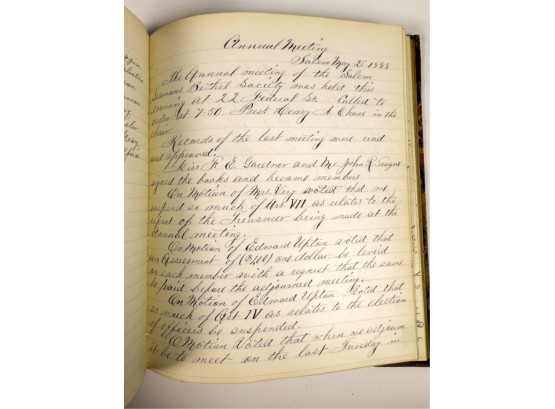 Annual Meeting
Salem May 1888
The Annual meeting of the Salem
Seamans Bethel Society was held this
evening at 22 Federal St. Called to
order at 7-30. Prest Henry A Chase in the
chair.
Records of the last meeting were read
and approved.
Miss F. E. Gardner and Mr. John R.
signed the books and became members
On Motion of Mrs Very voted that we
suspend so much of Art VII as relates to the
report of the Treasurer being made at the
Annual meeting.
On Motion of Edward Upton voted that
an Assessment of one dollar be levied
on each member with a request that the same
be paid before the adjourned meeting.
On Motion of Edward Upton Voted that
so much of Art IV as relates to the election
of officers be suspended.
On Motion Voted that when we adjourn
it be to meet on the last Tuesday in